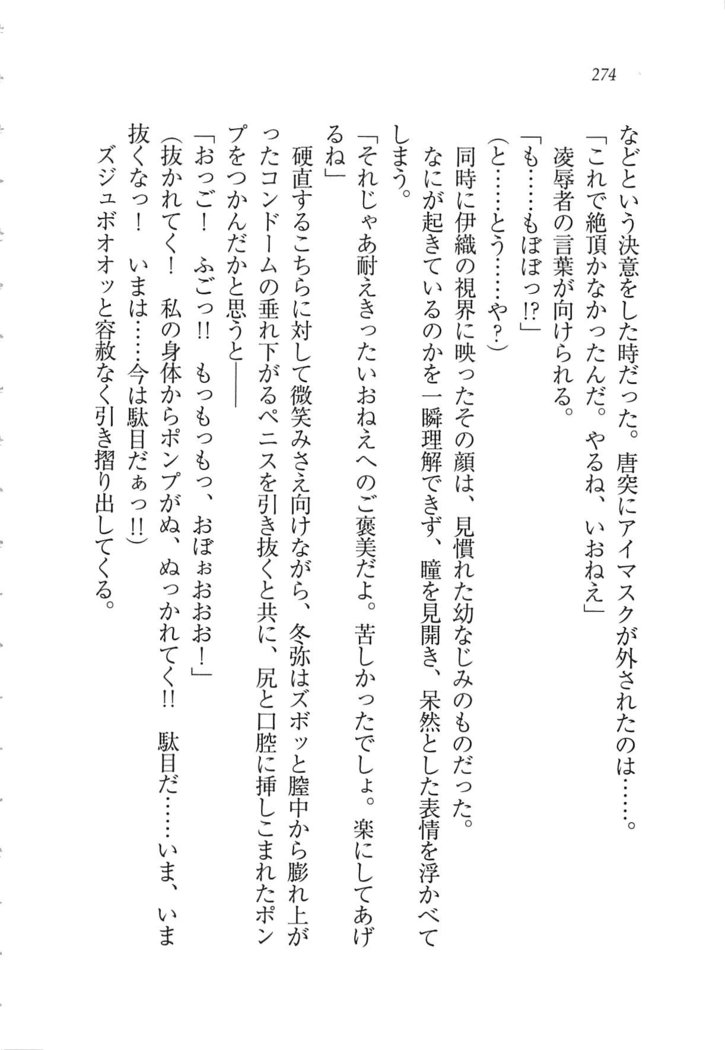 274
などという決意をした時だった。唐突にアイマスクが外されたのは……。
「これで絶頂かなかったんだ。やるね、いおねえ」
凌辱者の言葉が向けられる。
「も……もぼぼっ!?」
(と……とう……や?)
同時に伊織の視界に映ったその顔は、見慣れた幼なじみのものだった。
なにが起きているのかを一瞬理解できず、瞳を見開き、呆然とした表情を浮かべて
しまう。
「それじゃあ耐えきったいおねえへのご褒美だよ。苦しかったでしょ。楽にしてあげ
るね」
硬直するこちらに対して微笑みさえ向けながら、冬弥はズボッと膣中から膨れ上が
ったコンドームの垂れ下がるペニスを引き抜くと共に、尻と口腔に挿しこまれたポン
プをつかんだかと思うと――
「おっご! ふごっ!! もっもっもっ、おぼぉおおお!」
(抜かれてく! 私の身体からポンプがぬ、ぬっかれてく!! 駄目だ……いま、いま
抜くなっ! いまは……今は駄目だぁっ!!)
ズジュボオオッと容赦なく引き摺り出してくる。